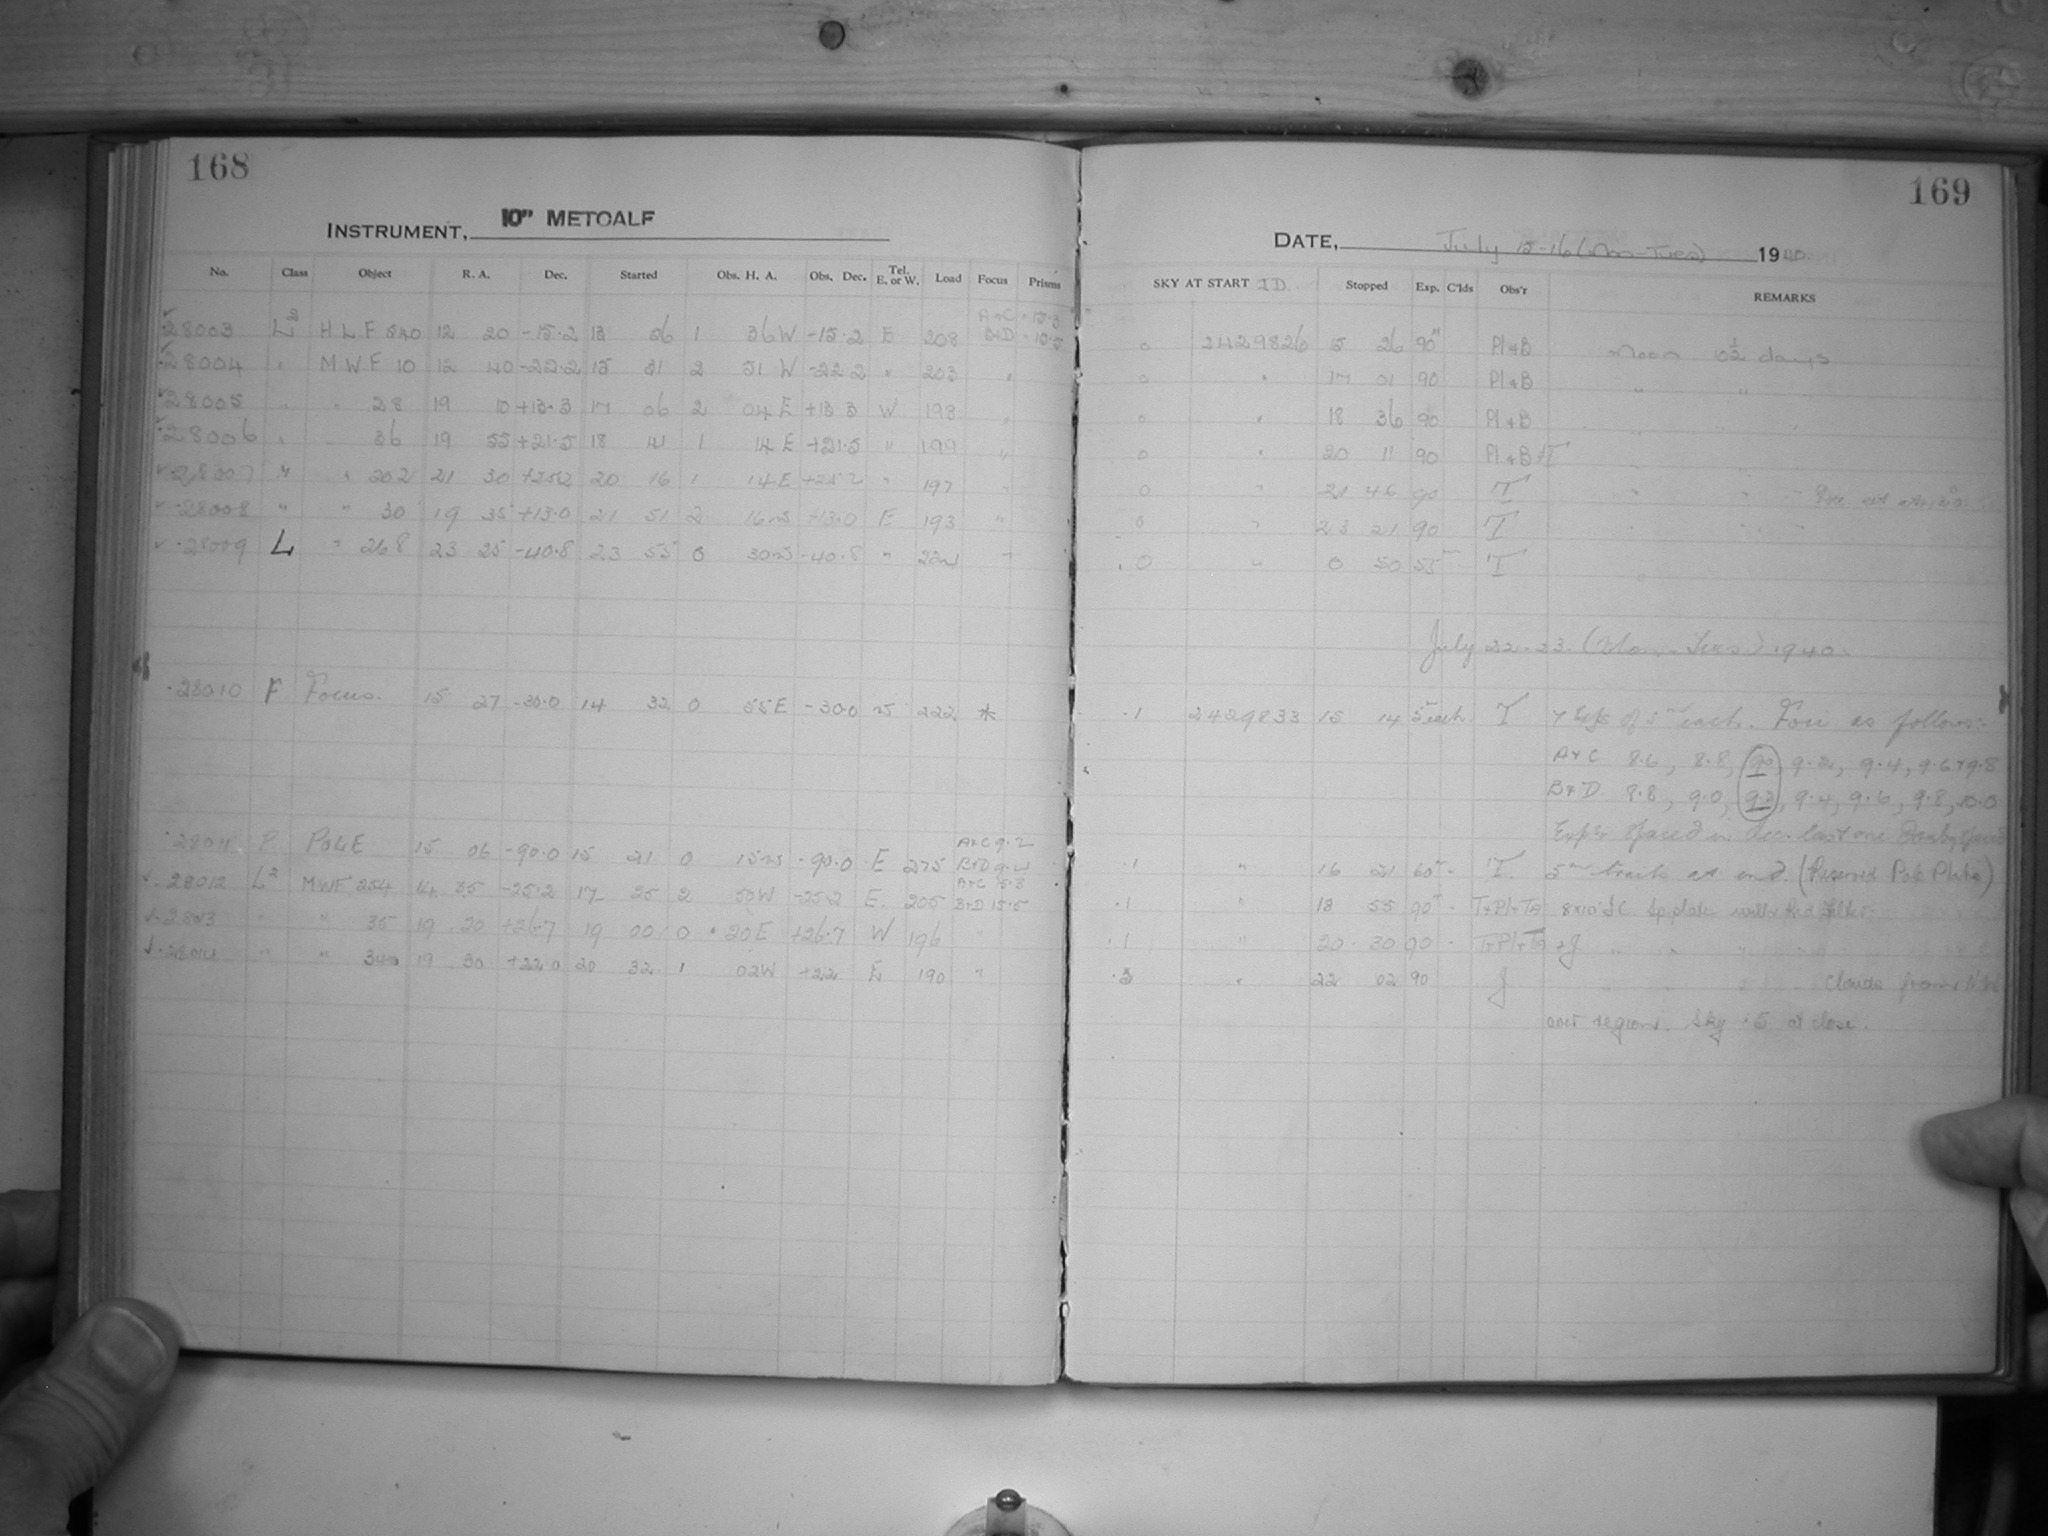 168
INSTRUMENT, 10" METCALF
No. Class Object R. A. Dec. Started Obs. H. A. Obs. Dec. Tel. E. or W. Load Focus Prisms
A+C - 15.3
28003 L2 H L F 13 20 -15.2 13 56 1 36 W -15.2 E 208 B+D - 15.5
28004 " M W F 10 12 40 -22.2 15 31 2 51 W -22.2 " 203 "
28005 " " 28 19 10 +13.3 17 06 2 04 E +13.3 W 193 "
28006 " " 36 19 55 +21.5 18 41 1 14 E +21.5 " 199 "
28007 " " 202 21 30 20 16 1 14 E " 197 "
28008 " " 30 19 35 +13.0 21 51 2 16 W +13.0 E 193 "
28009 L " 268 23 25 -40.8 23 55 0 30 W -40.8 "
28010 F Focus. 15 27 -30.0 14 32 0 55 E -30.0 W 222 *
A+C 9.2
28011 P POLE 15 06 -90.0 15 21 0 15 W -90.0 E 275 B+D 9.4
A+C 15.3
28012 L2 MWF 254 14 35 -25.2 17 25 2 50 W -25.2 E. 205 B+D 15.5
28013 " " 35 19 20 +26.7 19 00 0 20 E +26.7 W 196 "
28014 " " 19 30 +22.0 20 32 1 02 W +22 E 190 "
169
DATE, July 15-16 (Mon-Tues) 1940
SKY AT START JD Stopped Exp. C'lds Obs'r REMARKS
0 2429826 15 26 90m Pl+B Moon 10½ days
0 " 17 01 90 Pl+B " "
0 " 18 36 90 Pl+B " "
0 " 20 11 90 Pl+B+T " "
0 " 21 46 90 T " "
0 " 23 21 90 T " "
0 " 0 50 55m T "
July 22-23. (Mon-Tues) 1940
.1 2429833 15 14 5m each T 7 Exps of 5m each. Foci as follows:-
A+C 8.6, 8.8, 9.0, 9.2, 9.4, 9.6 + 9.8
B+D 8.8, 9.0, 9.2, 9.4, 9.6, 9.8, 10.0
Exps spaced in dec. last one doubly spaced
.1 " 16 21 60m T. 5m trails at end. (Reserved Pole Plate)
.1 " 18 55 90m T+Pl+TA 8x10 plate with Red Filter.
.1 " 20 30 90 T+Pl+TA+J " " "
.3 " 22 02 90 J " " " Clouds from
over regions. Sky .5 at close.